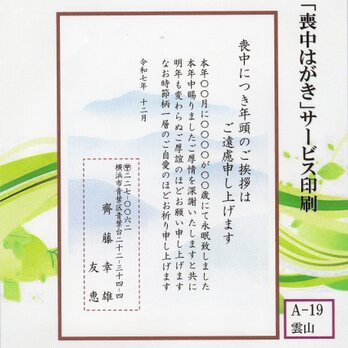 「喪中はがき」サービス印刷
喪中につき年頭のご挨拶は
ご遠慮申し上げます
本年〇〇月に〇〇〇〇が〇〇〇歳にて永眠致しました
本年中賜りましたご厚情を深謝いたしますと共に
明年も変わらぬご厚誼のほどお願い申し上げます
なお時節柄一層のご自愛のほどお祈り申し上げます
令和七年 十二月
〒二二七-〇〇六二
横浜市青葉区青葉台二-二-三十四-四
齊藤幸雄
友恵
A-19
雲山